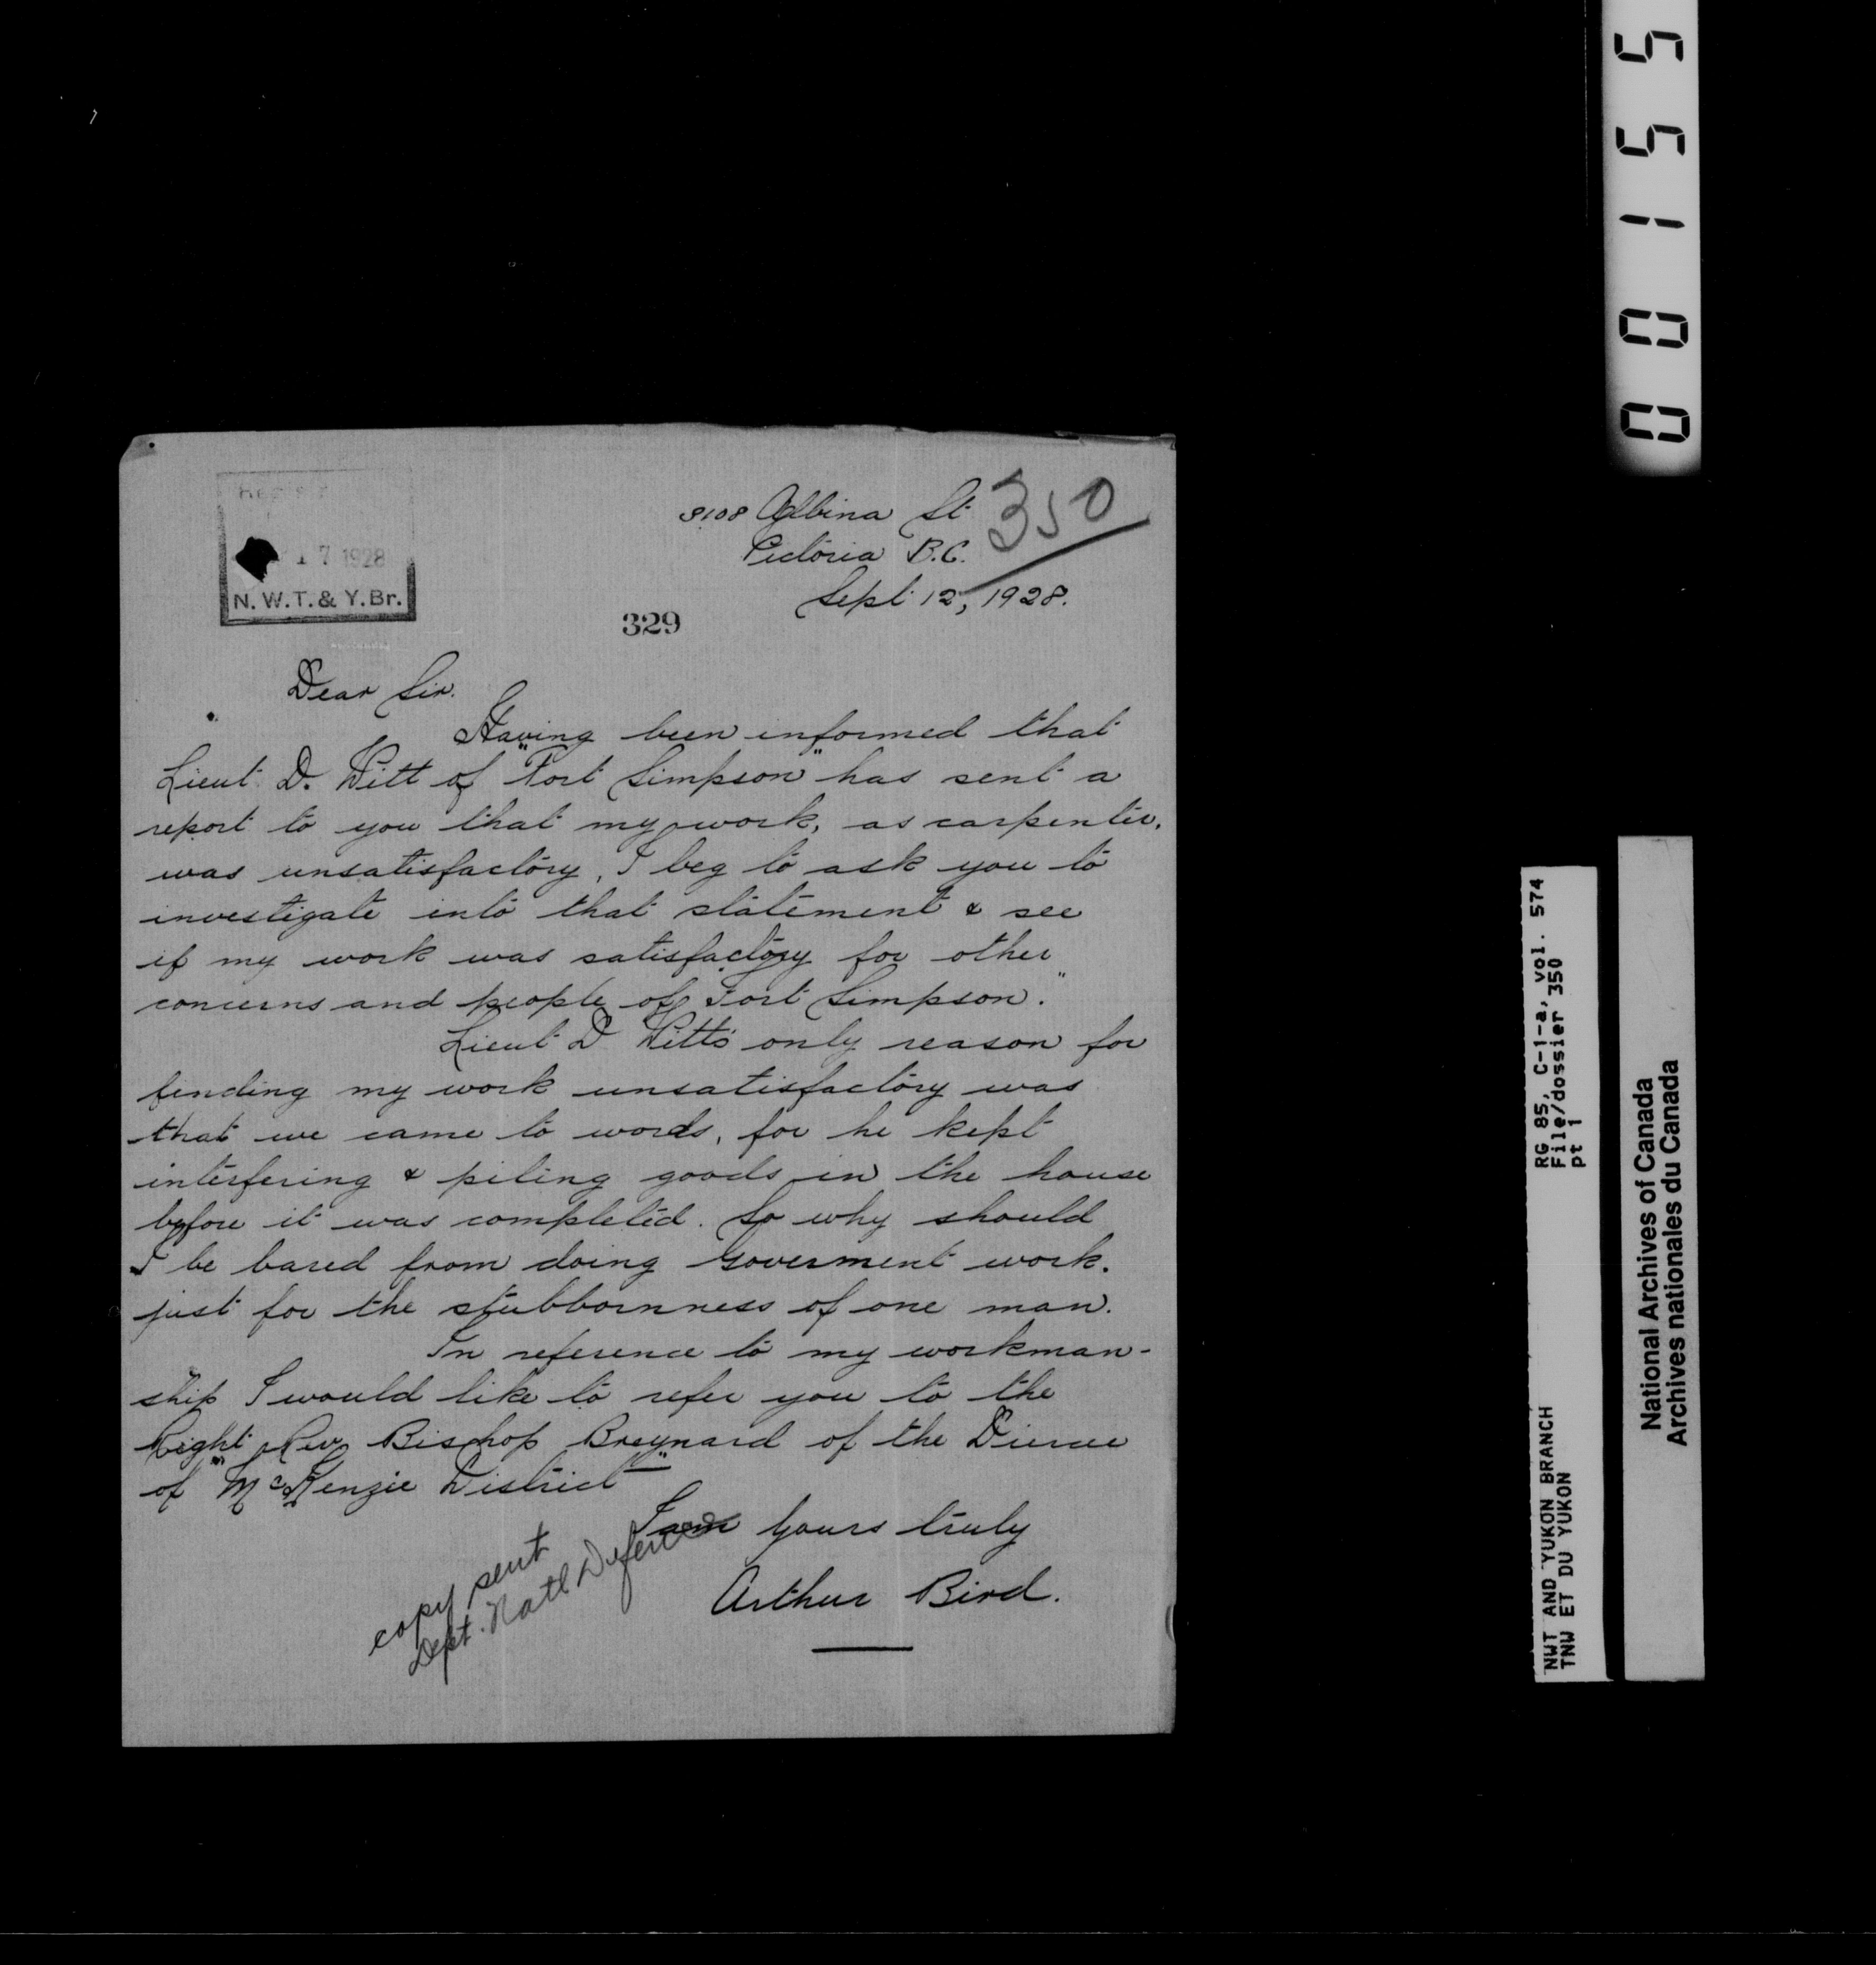 00155
350
3108 Albina St
Victoria B.C.
Sept 12, 1928.
17 1928
N.W.T. & Y.Br.
329
Dear Sir.
Having been informed that
Lieut. D. Witt of "Fort Simpson" has sent a
report to you that my work, as carpenter,
was unsatisfactory, I beg to ask you to
investigate into that statement & see
if my work was satisfactory for other
concerns and people of "Fort Simpson."
Lieut D Witt's only reason for
finding my work unsatisfactory was
that we came to words, for he kept
interfering & piling goods in the house
before it was completed. So why should
I be bared from doing Goverment work.
just for the stubbornness of one man.
In reference to my workman-
ship I would like to refer you to the
Right Rev Bishop Breynard of the
of "McKenzie District"
I am Yours truly
Arthur Bird.
copy sent
Dept. Natl Defence
RG 85, C-1-a, vol. 574
File/dossier 350
pt 1
NWT AND YUKON BRANCH
TNW ET DU YUKON
National Archives of Canada
Archives nationales du Canada